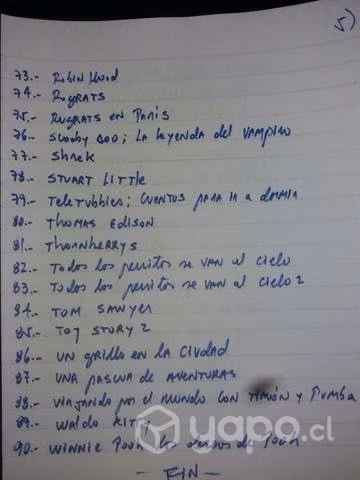 5)
73.- Robin Hood
74.- Rugrats
75.- Rugrats en Paris
76.- Scooby Doo; La leyenda del vampiro
77.- Shrek
78.- STUART LITTLE
79.- Teletubbies; Cuentos para ir a dormir
80.- THOMAS EDISON
81.- Thornberrys
82.- Todos los perritos se van al cielo
83.- Todos los perritos se van al cielo 2
84.- TOM SAWYER
85.- TOY STORY 2
86.- UN grillo en la Ciudad
87.- UNA pascua de AVENTURAS
88.- VIAJANDO por el mundo con Timón y Pumba
89.- Waldo Kitty
90.- WINNIE Pooh los deseos de Pooh
- FIN -
yapo.cl